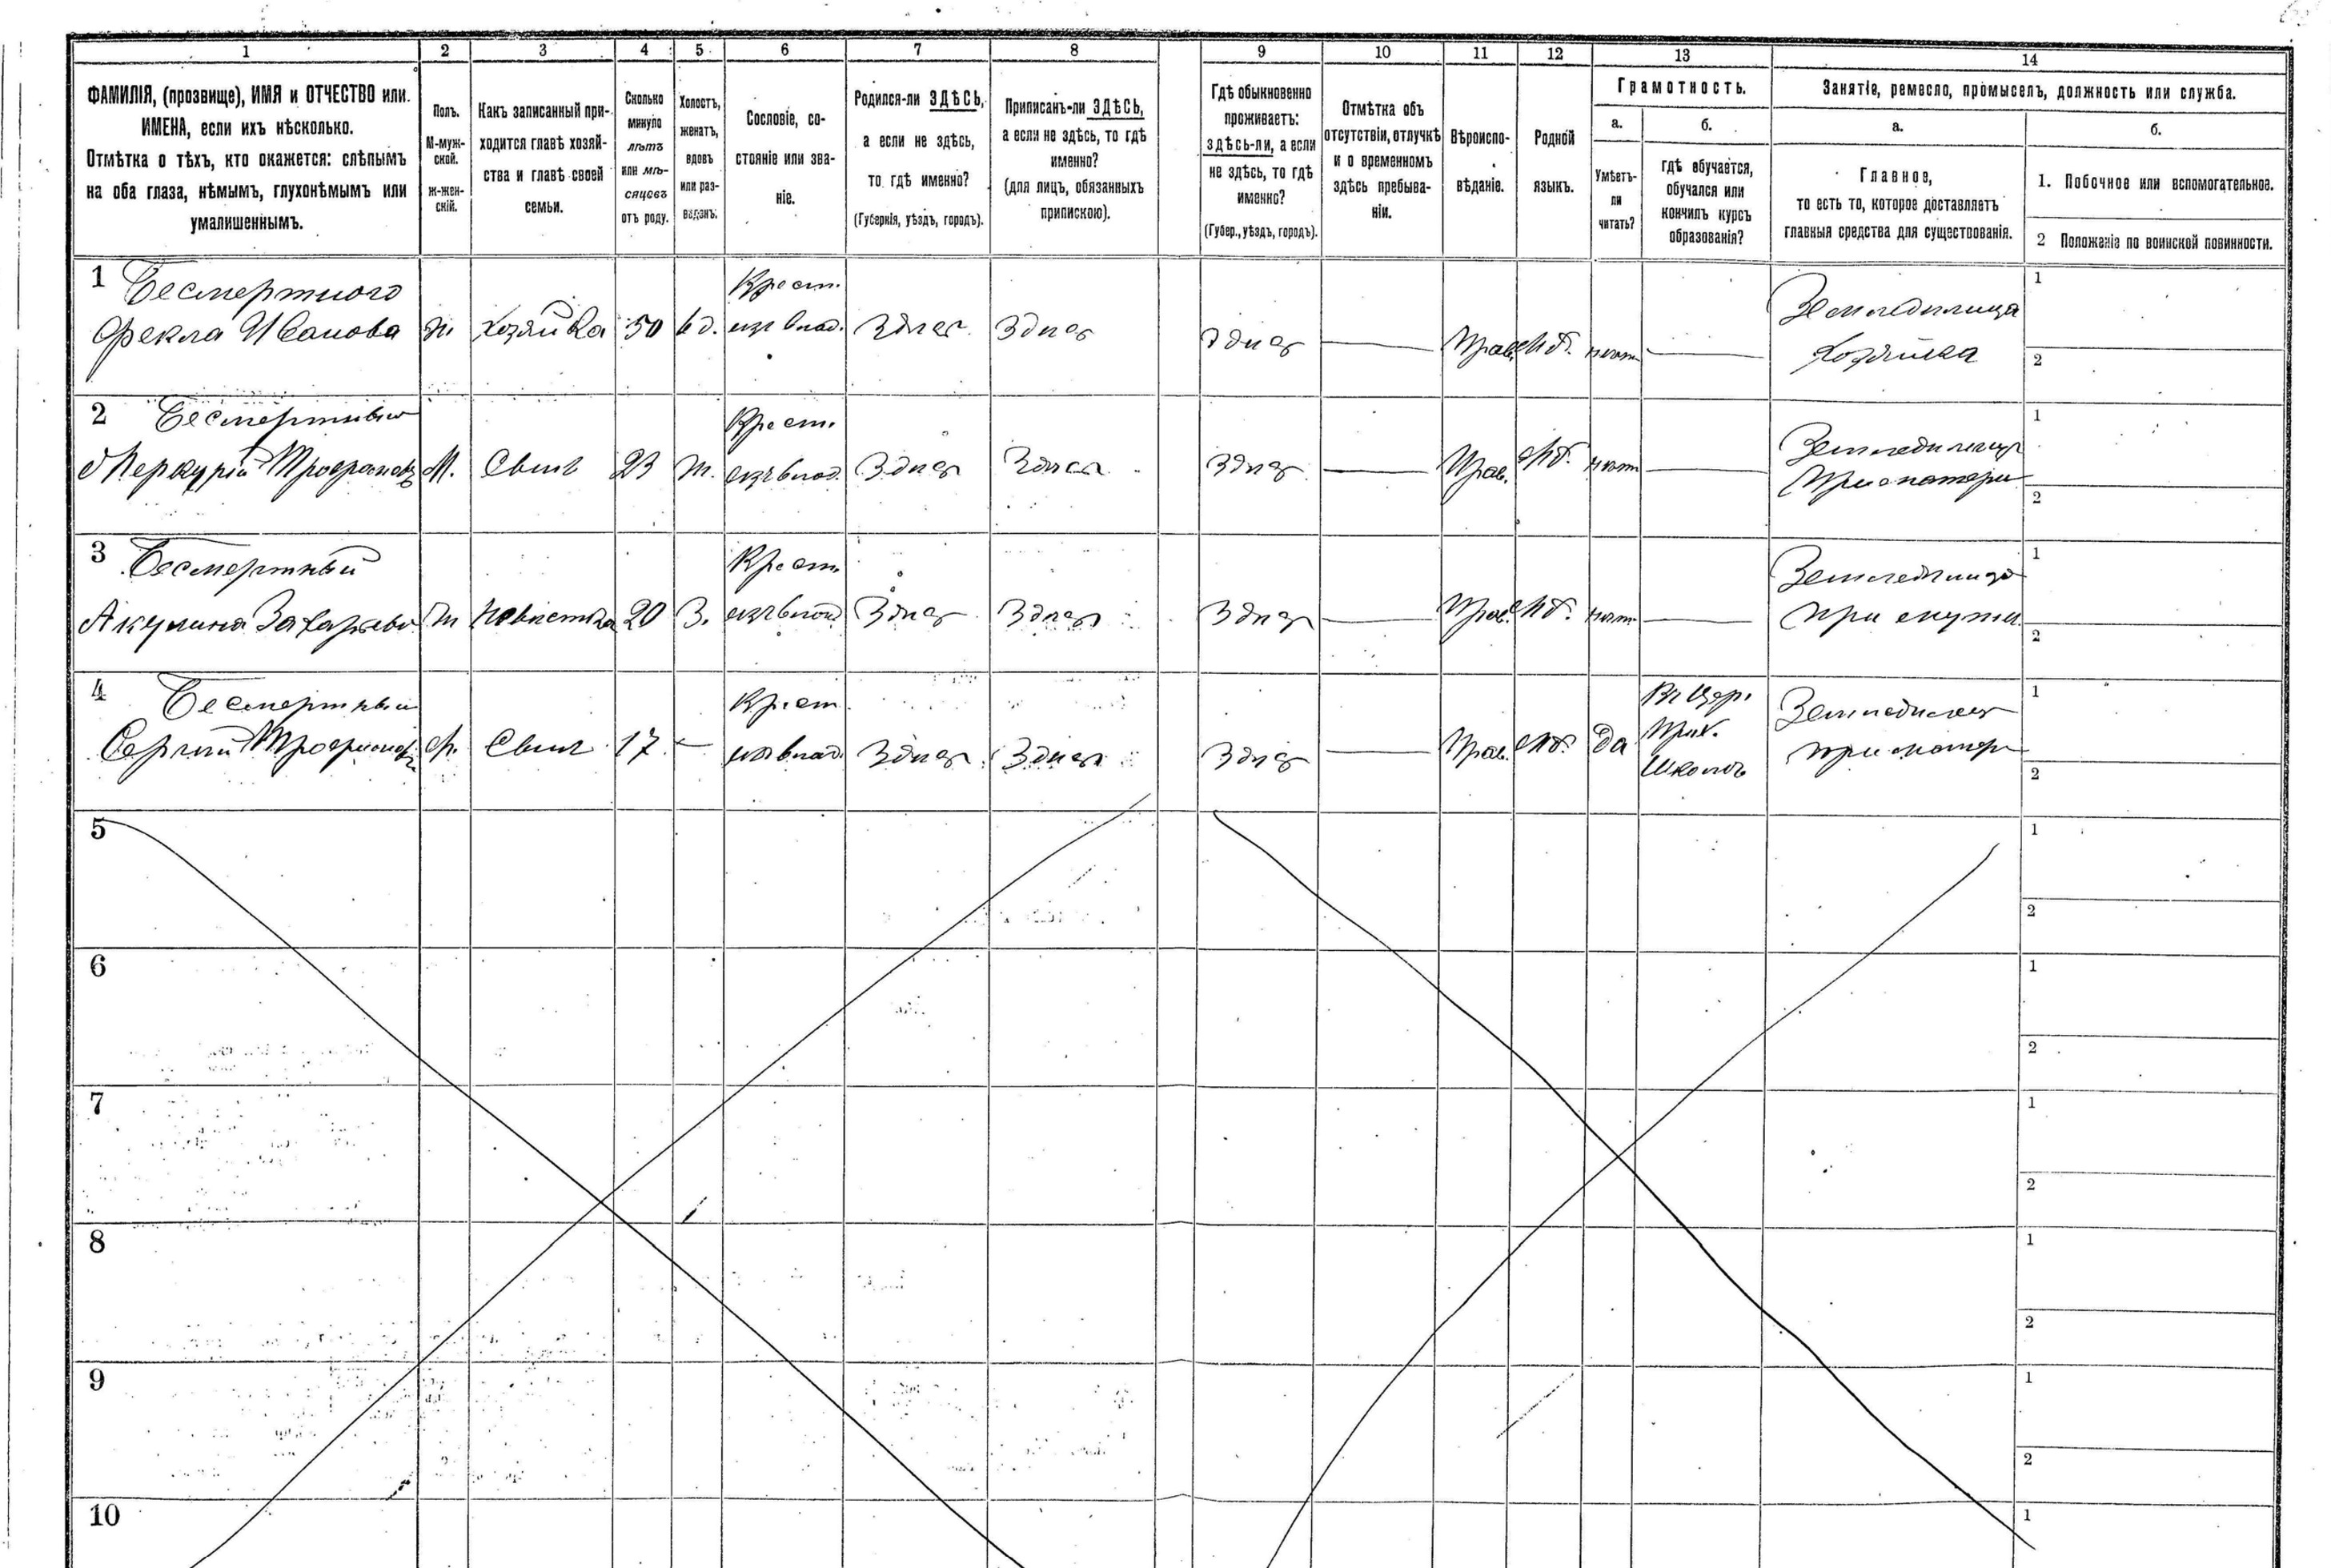 1 2 3 4 5 6 7 8 9 10 11 12 13 14
ФАМИЛІЯ, (прозвище), ИМЯ и ОТЧЕСТВО или
ИМЕНА, если ихъ нѣсколько.
Отмѣтка о тѣхъ, кто окажется: слѣпымъ
на оба глаза, нѣмымъ, глухонѣмымъ или
умалишеннымъ.
Полъ.
М-муж-
ской.
ж-жен-
скій.
Какъ записанный при-
ходится главѣ хозяй-
ства и главѣ своей
семьи.
Сколько
минуло
лѣтъ
или мѣ-
сяцевъ
отъ роду.
Холостъ,
женатъ,
вдовъ
или раз-
веденъ.
Сословіе, со-
стояніе или зва-
ніе.
Родился-ли ЗДѢСЬ,
а если не здѣсь,
то гдѣ именно?
(Губернія, уѣздъ, городъ).
Приписанъ-ли ЗДѢСЬ,
а если не здѣсь, то гдѣ
именно?
(для лицъ, обязанныхъ
припискою).
Гдѣ обыкновенно
проживаетъ:
здѣсь-ли, а если
не здѣсь, то гдѣ
именно?
(Губер., уѣздъ, городъ).
Отмѣтка объ
отсутствіи, отлучкѣ
и о временномъ
здѣсь пребыва-
ніи.
Вѣроиспо-
вѣданіе.
Родной
языкъ.
Грамотность.
а.
Умѣетъ-
ли
читать?
б.
гдѣ обучается,
обучался или
кончилъ курсъ
образованія?
Занятіе, ремесло, промыселъ, должность или служба.
а.
Главное,
то есть то, которое доставляетъ
главныя средства для существованія.
б.
1. Побочное или вспомогательное.
2 Положеніе по воинской повинности.
1 Бесмертного Крест. Земледѣлица 1
Фекла Иванова ж Хозяйка 50 вд. изъ влад. Здѣсь Здѣсь Здѣсь Прав. нѣтъ Хозяйка 2
2 Бесмертный Крест. Земледѣлецъ 1
Меркурій Трофимовъ М. Сынъ 23 ж. изъ влад. Здѣсь Здѣсь Здѣсь Прав. нѣтъ при матери 2
3 Бесмертный Крест. Земледѣлица 1
Акулина Захарьева ж невѣстка 20 З. изъ влад. Здѣсь Здѣсь Здѣсь Прав. нѣтъ при мужѣ 2
4 Бесмертный Крест. Въ Цер. Земледѣлецъ 1
Сергій Трофимовъ Сынъ 17 изъ влад. Здѣсь Здѣсь Здѣсь Прав. да Прих. при матери
Школѣ 2
5 1
2
6 1
2
7 1
2
8 1
2
9 1
2
10 1